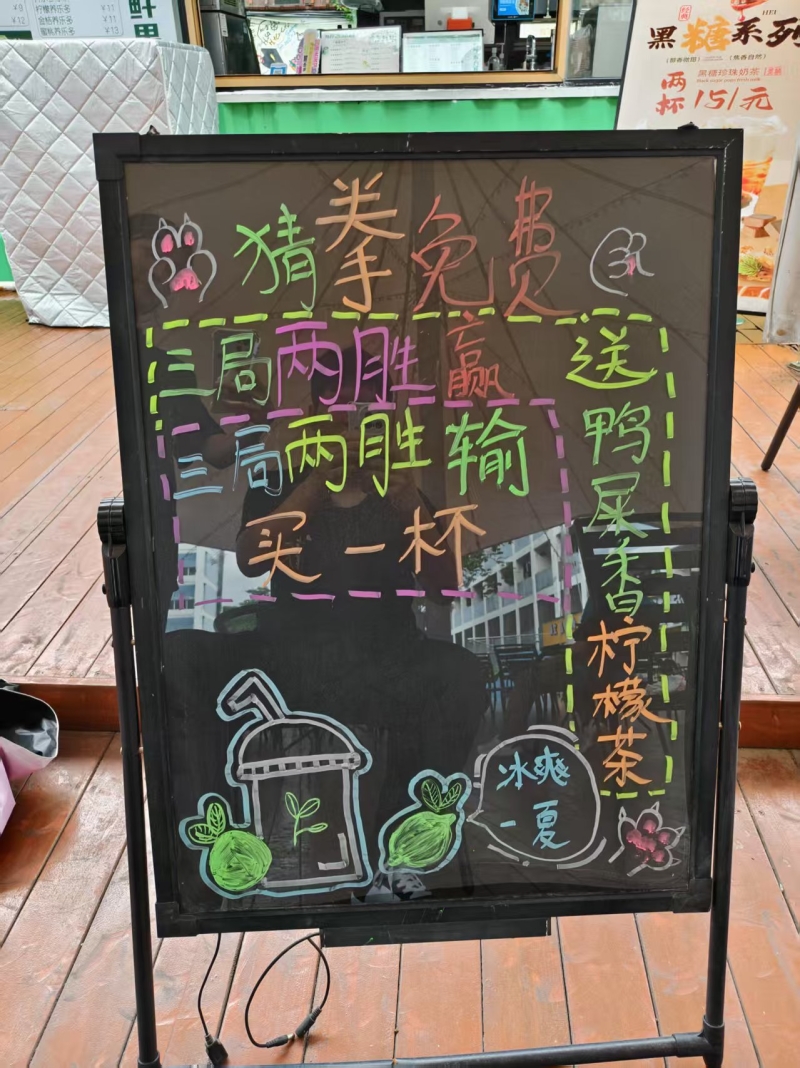 柠檬养乐多 ¥11
¥12 金桔养乐多 ¥11
蜜桃养乐多 ¥13
经典
黑糖系列
黑糖珍珠奶茶
两杯 15/元
猜拳免费
三局两胜赢
三局两胜输
买一杯
送鸭屎香柠檬茶
冰爽
一夏